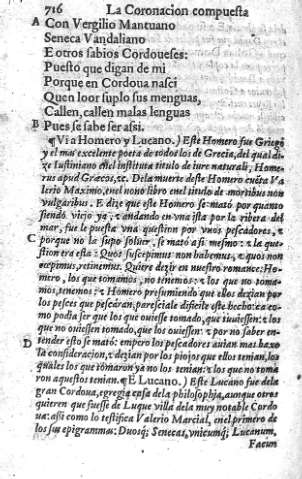 716 La Coronacion compuesta
A Con Vergilio Mantuano
Seneca Vandaliano
E otros sabios Cordoueses:
Puesto que digan de mi
Porque en Cordoua nasci
Quen loor suplo sus menguas,
Callen, callen malas lenguas
B Pues se sabe ser assi.
¶ Vi a Homero y Lucano.) Este Homero fue Griego
y el mas excelente poeta de todos los de Grecia, del qual di-
ze Iustiniano enel instituta titulo de iure naturali, Home-
rus apud Græcos, &c. De la muerte deste Homero cuēta Va-
lerio Maximo, enel nono libro enel titulo de mortibus non
vulgaribus. E dize que este Homero se mató por quanto
siendo viejo ya, & andando en vna isla por la ribera del
mar, fue le puesta vna question por vnos pescadores, &
C porque no la supo soluer, se mató a si mesmo: & la que-
stion era esta: Quos suscepimus non habemus, & quos non
cœpimus, retinemus. Quiere dezir en nuestro romance: Ho-
mero, los que tomamos, no tenemos: & los que no toma-
mos, tenemos: & Homero presumiendo que ellos dezian por
los peces que pescaran, paresciale dificile este hecho: ca co-
mo podia ser que los que ouiesse tomado, que tuuiessen: & los
que no ouiessen tomado, que los ouiessen: & por no saber en-
D tender esto se mató: empero los pescadores auian mas baxo
la consideracion, & dezian por los piojos que ellos tenian, los
quales los que tomaron ya no los tenian: & los que no toma
ron aquestos tenian. ¶ E Lucano.) Este Lucano fue dela
gran Cordoua, egregia casa dela philosophia, aunque otros
quieren que fuesse de Luque villa dela muy notable Cordo
ua: assi como lo testifica Valerio Marcial, enel primero de
los sus epigrammas: Duosq; Senecas, vnicumq; Lucanum,
Facun